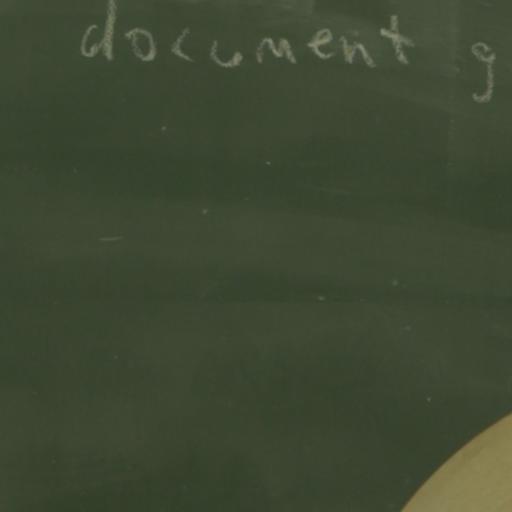 document g